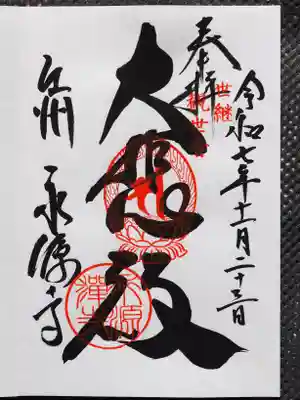 令和七年十一月二十三日
奉拝
世継
観世音
大悲殿
江州 永源寺
永源禅寺